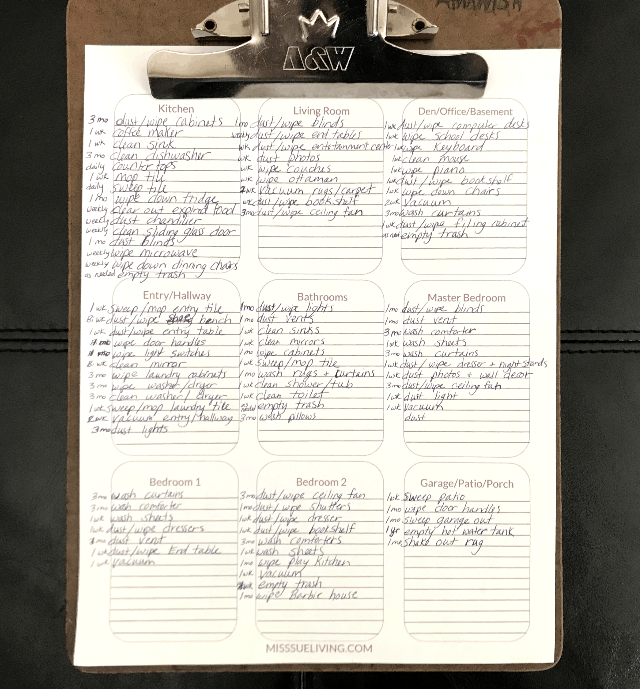 AMANISH
A&W
Kitchen
3 mo dust/wipe cabinets
1 wk coffee maker
1 wk clean sink
3 mo clean dishwasher
daily counter tops
1 wk mop tile
daily sweep tile
1 mo wipe down fridge
weekly clear out expired food
weekly dust chandlier
weekly clean sliding glass door
1 mo dust blinds
weekly wipe microwave
weekly wipe down dinning chairs
as needed empty trash
Living Room
1mo dust/wipe blinds
weekly dust/wipe end tables
wk dust/wipe entertainment center
wk dust photos
wk wipe couches
wk wipe ottaman
2wk vacuum rugs/carpet
wk dust/wipe bookshelf
3mo dust/wipe ceiling fan
Den/Office/Basement
1wk dust/wipe computer desks
1wk wipe school desks
1wk wipe keyboard
1wk clean mouse
1wk wipe piano
1wk dust/wipe bookshelf
1wk wipe down chairs
2wk vacuum
3mo wash curtains
1wk dust/wipe filing cabinet
as need empty trash
Entry/Hallway
1 wk sweep/mop entry tile
2 wk dust/wipe shoe bench
1 wk dust/wipe entry table
1 mo wipe door handles
1 mo wipe light switches
2 wk clean mirror
3 mo wipe laundry cabinets
3 mo wipe washer/dryer
3 mo clean washer/dryer
1 wk sweep/mop laundry tile
2 wk vacuum entry/hallway
3 mo dust lights
Bathrooms
1mo dust/wipe lights
1mo dust vents
1wk clean sinks
1wk clean mirrors
1mo wipe cabinets
1wk sweep/mop tile
1mo wash rugs + curtains
1wk clean shower/tub
1wk clean toilet
empty trash
3mo wash pillows
Master Bedroom
1mo dust/wipe blinds
1mo dust vent
3mo wash comforter
1wk wash sheets
3mo wash curtains
1wk dust/wipe dresser + night stands
1wk dust photos + wall decor
3mo dust/wipe ceiling fan
1wk dust light
1wk vacuum
dust
Bedroom 1
3 mo wash curtains
3 mo wash comforter
1 wk wash sheets
1wk dust/wipe dressers
dust vent
1 wk dust/wipe End table
1 wk vacuum
Bedroom 2
3mo dust/wipe ceiling fan
1mo dust/wipe shutters
1wk dust/wipe dresser
1wk dust/wipe bookshelf
3mo wash comforters
1wk wash sheets
1mo wipe play kitchen
1wk vacuum
1wk empty trash
1mo wipe Barbie house
Garage/Patio/Porch
1wk sweep patio
1mo wipe door handles
1mo sweep garage out
1yr empty hot water tank
1mo shake out rug
MISSSUELIVING.COM